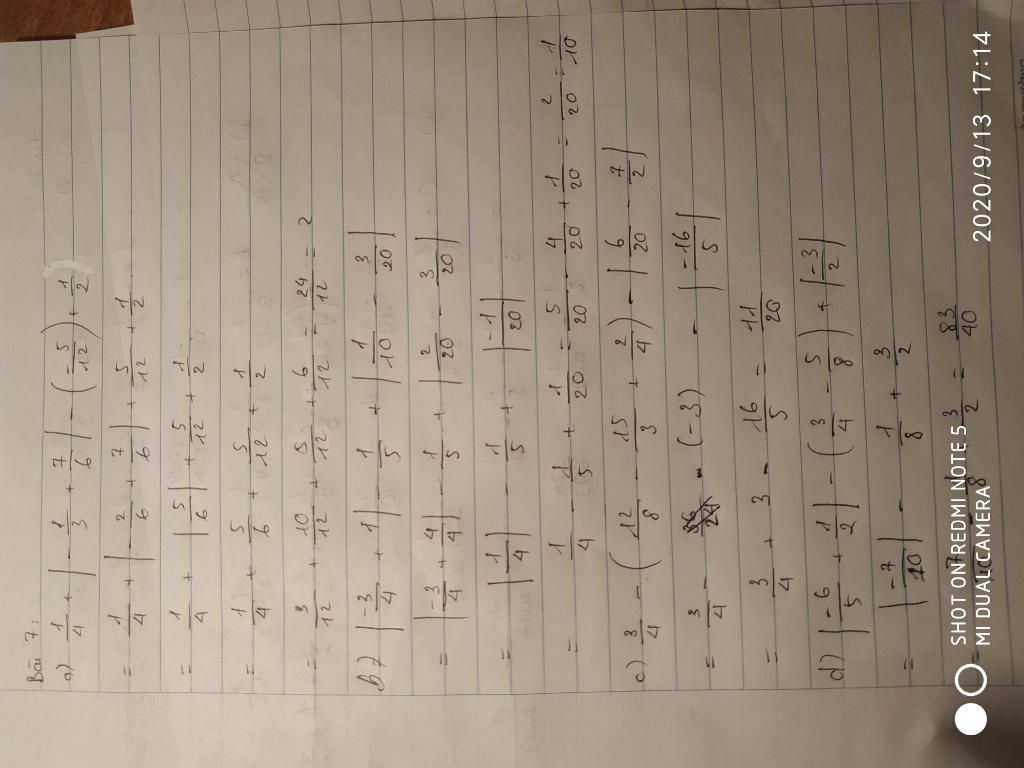 Bài 7:
a) 1/4 + |-1/3 + 7/6| - (-5/12) + 1/2
= 1/4 + |-2/6 + 7/6| + 5/12 + 1/2
= 1/4 + |5/6| + 5/12 + 1/2
= 1/4 + 5/6 + 5/12 + 1/2
= 3/12 + 10/12 + 5/12 + 6/12 = 24/12 = 2
b) |-3/4 + 1| - 1/5 + |1/10 - 3/20|
= |-3/4 + 4/4| - 1/5 + |2/20 - 3/20|
= |1/4| - 1/5 + |-1/20|
= 1/4 - 1/5 + 1/20 = 5/20 - 4/20 + 1/20 = 2/20 = 1/10
c) 3/4 - (12/8 - 15/3 + 2/4) - |6/20 - 7/2|
= 3/4 - (-3) - |-16/5|
= 3/4 + 3 - 16/5 = 11/20
d) |-6/5 + 1/2| - (3/4 - 5/8) + |-3/2|
= |-7/10| - 1/8 + 3/2
= 3/2 = 83/40
SHOT ON REDMI NOTE 5
MI DUAL CAMERA
2020/9/13 17:14